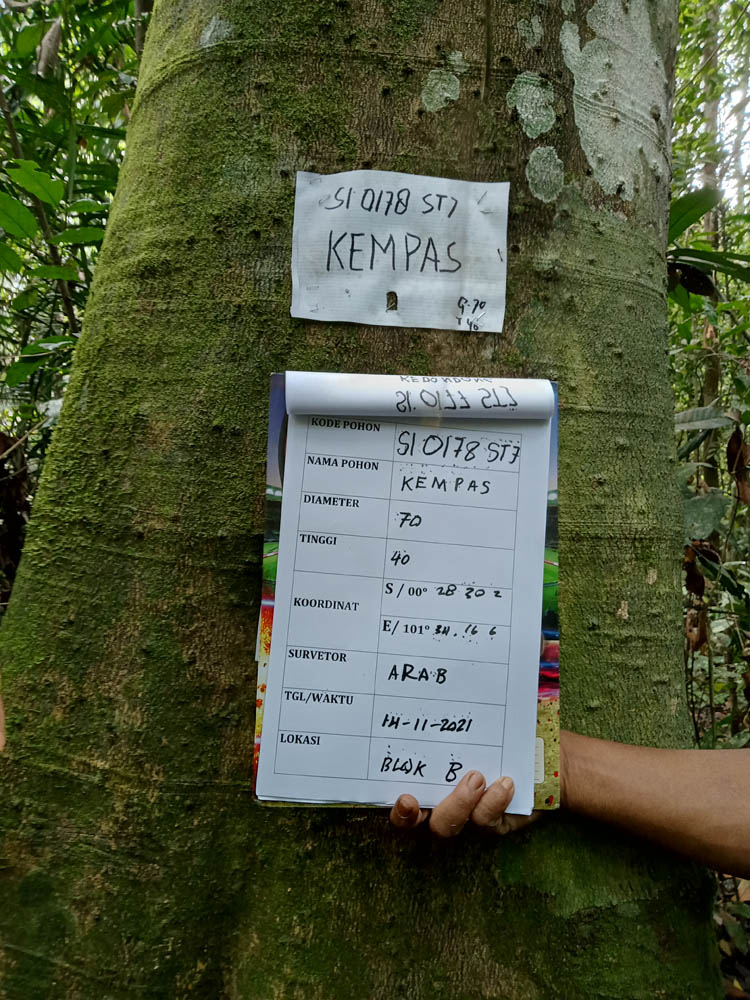 SI 0178 ST7
KEMPAS
G.70
T 40
KEDONDONG
SI.0177 ST7
KODE POHON SI 0178 ST7
NAMA POHON KEMPAS
DIAMETER 70
TINGGI 40
KOORDINAT S / 00° 28 30 2
E/ 101° 34.16 6
SURVETOR ARAB
TGL/WAKTU 14-11-2021
LOKASI BLOK B